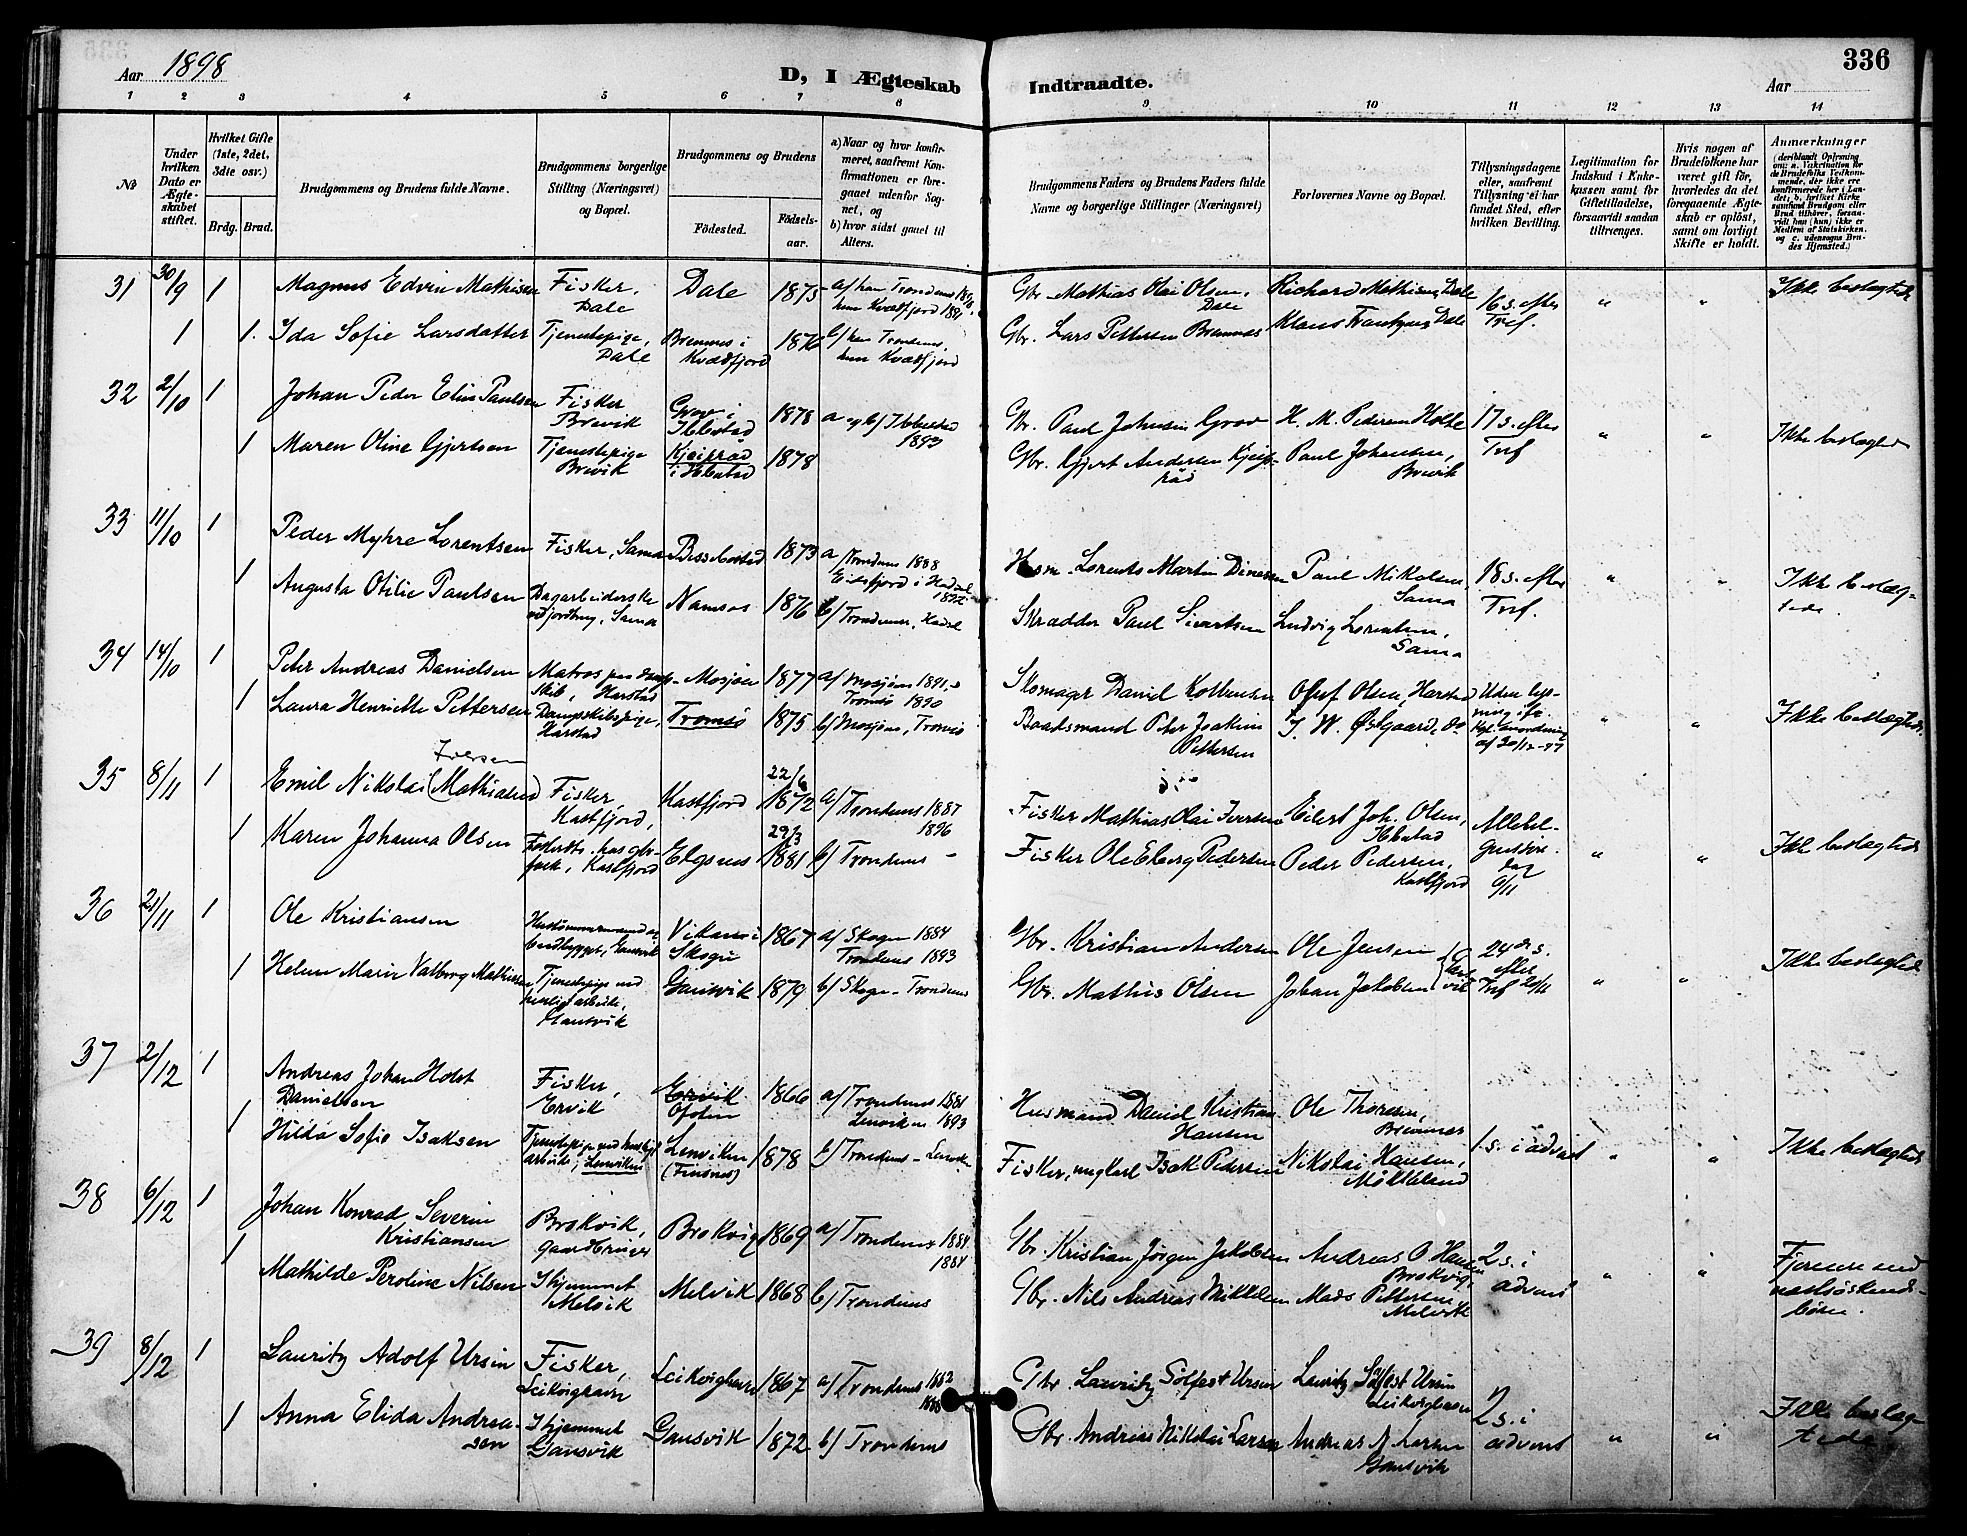 336
Aar 1898
D, I Ægteskab Indtraadte.
Aar
1 2 3 4 5 6 7 8 9 10 11 12 13 14
№
Under hvilken Dato er Ægteskabet stiftet.
Hvilket Gifte (1ste, 2det, 3die osv.)
Brdg. Brud.
Brudgommens og Brudens fulde Navne.
Brudgommens borgerlige Stilling (Næringsvei) og Bopæl.
Brudgommens og Brudens
Födested.
Födselsaar.
a) Naar og hvor konfirmeret, saafremt Konfirmationen er foregaaet udenfor Sognet, og
b) hvor sidst gaaet til Alters.
Brudgommens Faders og Brudens Faders fulde Navne og borgerlige Stillinger (Næringsvei)
Forlovernes Navne og Bopæl.
Tillysningsdagene eller, saafremt Tillysning ei har fundet Sted, efter hvilken Bevilling.
Legitimation for Indskud i Enkekassen samt for Giftetilladelse, forsaavidt saadan tiltrænges.
Hvis nogen af Brudefolkene har været gift för, hvorledes da det foregaaende Ægteskab er oplöst, samt om lovligt Skifte er holdt.
Anmærkninger
31 30/9 1 Magnus Edvin Mathisen Fisker, Dale Dale 1875 a/ han Trondenes
hun Kvædfjord 1891
Gbr. Mathias Olai Olsen, Dale Richard Mathisen, Dale 16 s. efter Tref. " " Ikke beslægtede
1 1. Ida Sofie Larsdatter Tjenestepige, Dale Bremnes i Kvædfjord 1876 b/ han Trondenes, hun Kvædfjord
Gbr. Lars Pettersen Bremnes Klaus Frantzen, Dale
32 2/10 1 Johan Peder Elias Paulsen Fisker Brevik Grov i Ibbestad 1878 a og b/ Ibbestad 1893
Gbr. Paul Johnsen Grov H. M. Pedersen Holte 17 s. efter Tref " " Ikke beslægted
1 Maren Oline Gjertsen Tjenestepige Brevik Kjeiprød i Ibbestad 1878
Gbr. Gjert Andersen Kjeiprød Paul Johansen, Brevik
33 11/10 1 Peder Myhre Lorentsen Fisker, Sama 1873 a/ Trondenes 1888
Eidsfjord i Hadsel
Hsm. Lorents Martin Paul Mikalsen, Sama 18 s. efter Tref. " " Ikke beslægtede
1 Augusta Otilie Paulsen Dagarbeiderske Sama Namsos 1876 b/ Trondenes, Hadsel
Skrædder Paul Sivertsen Ludvig Lorentsen, Sama
34 14/10 1 Peter Andreas Danielsen Matros paa Dampskib, Harstad Mosjøen 1877 a/ Mosjøen 1891,
Tromsø 1890
Skomager Daniel Oluf Olsen, Harstad Uden lysning ifl. Kgl. Anordning af 20/12-77 " " Ikke beslægtede
1 Laura Henriette Pettersen Dampskibspige, Harstad Tromsø 1875 b/ Mosjøen, Tromsø
Baadsmand Peter Joakim Pettersen J. W. Østgaard, do
35 8/11 1 Emil Nikolai (Mathiasen) Iversen Fisker, Kastfjord, Kastfjord 22/6 1872 a/ Trondenes 1887
1896
Fisker Mathias Olai Iversen Eilert Joh. Olsen, Ibbestad 6/11 " " Ikke beslægtede
1 Karen Johanna Olsen Kastfjord Elgsnes 29/3 1881 b/ Trondenes
Fisker Ole Eberg Pedersen Peder Pedersen, Kastfjord
36 21/11 1 Ole Kristiansen Gansvik Vikan i Skogn 1867 a/ Skogn 1884
Trondenes 1893
Gbr. Kristian Andersen Ole Jensen 24de s. efter Tref 20/11 " " Ikke beslægtede
1 Helene Marie Valborg Mathisen Tjenestepige ved huslig arbeide, Gansvik Gansvik 1879 b/ Skogn - Trondenes
Gbr. Mathis Olsen Johan Jakobsen
37 2/12 1 Andreas Johan Holst Danielsen Fisker, Ervik Ervik 1866 a/ Trondenes 1881
Lenviken 1893
Husmand Daniel Kristian Hansen Ole Thoresen, Bremnes 1. s. i advent " " Ikke beslægtede
1 Hilda Sofie Isaksen Tjenestepige ved huslig arbeide, Lenviken Lenviken (Finsnes) 1878 b/ Trondenes - Lenviken
Fisker, ungkarl Isak Pedersen Nikolai Hansen, Møkkeland
38 6/12 1 Johan Konrad Severin Kristiansen Brokvik, gaardbruger Brokvig 1869 a/ Trondenes 1884
1884
Gbr. Kristian Jörgen Jakobsen Andreas O. Hansen Brokvig. 2 s. i advent " " Fjernere end næstsøskendebørn.
1 Mathilde Peroline Nilsen I hjemmet Melvik Melvik 1868 b/ Trondenes
Gbr. Nils Andreas Mikkelsen Mads Pettersen Melvik
39 8/12 1 Lauritz Adolf Ursin Fisker, Leikvighavn Leikvighavn 1867 a/ Trondenes 1882
1888
Gbr. Lauritz Solfest Ursin Lauritz Solfest Ursin Leikvighavn 2 s. i advent " " Ikke beslægtede
1 Anna Elida Andreasen I hjemmet Gansvik Gansvik 1872 b/ Trondenes
Gbr. Andreas Nikolai Larsen Andreas N. Larsen Gansvik